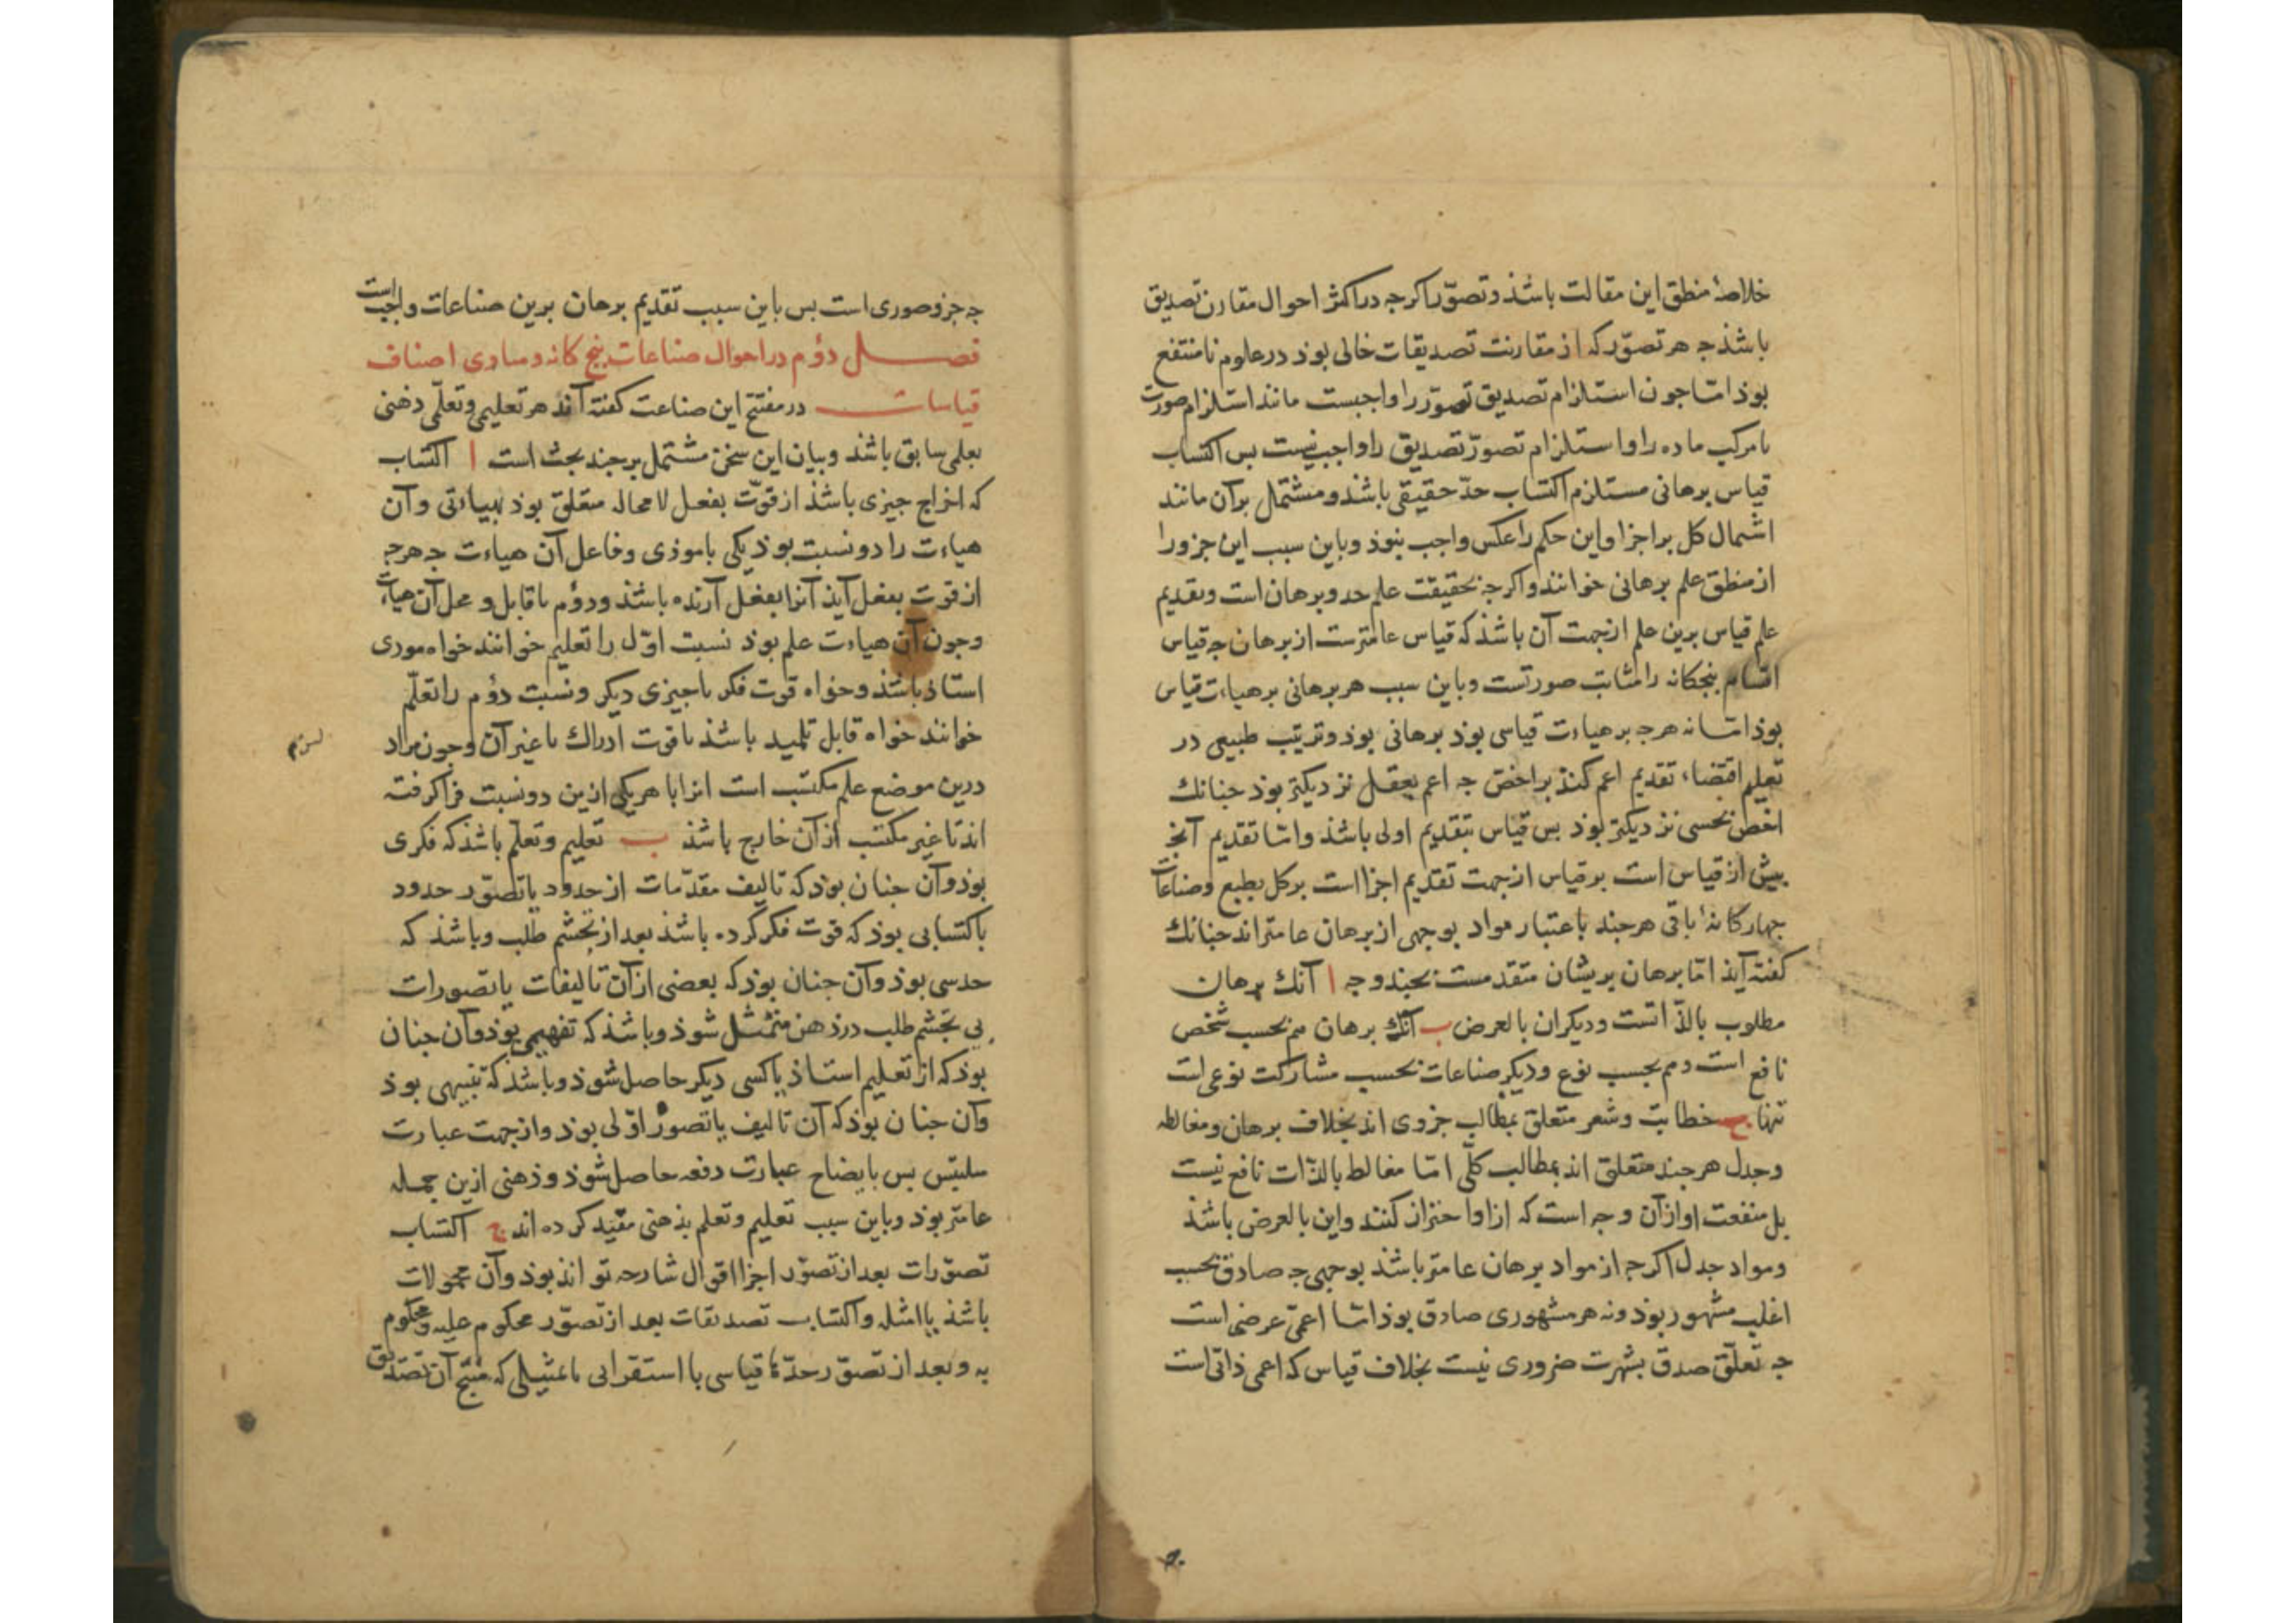 خلاصهٔ منطق این مقالت باشذ و تصوّر اکرجه در اکثر احوال مقارن تصدیق
باشذ جه هر تصوّر که از مقارنت تصدیقات خالی بوذ در علوم نامنتفع
بوذ امّا جون استلزام تصدیق تصوّر را واجبست مانند استلزام صورت
یا مرکب ماده را و استلزام تصوّر تصدیق را واجب نیست بس اکتساب
قیاس برهانی مستلزم اکتساب حدّ حقیقی باشذ و مشتمل بر آن مانند
اشتمال کل بر اجزا و این حکم را عکس واجب نبوذ و باین سبب این جزو را
از منطق علم برهانی خوانند و اکرجه بحقیقت علم حد و برهان است و تقدیم
علم قیاس برین علم ازجهت آن باشذ که قیاس عامترست از برهان جه قیاس
اقسام بنجکانه را مثابت صورتست و باین سبب هر برهانی بر هیاءت قیاس
بوذ امّا نه هرجه بر هیاءت قیاسی بوذ برهانی بوذ و ترتیب طبیعی در
تعلیم اقتضاء تقدیم اعم کنذ بر اخصّ جه اعم بعقل نزدیکتر بوذ جنانك
اخص بحسی نزدیکتر بوذ بس قیاس بتقدیم اولی باشذ و امّا تقدیم آنج
بیش از قیاس است بر قیاس ازجهت تقدیم اجزا است بر کل بطبع و صناعات
جهارکانهٔ باقی هرجند باعتبار مواد بوجهی از برهان عامتراند جنانك
کفته آیذ امّا برهان بریشان متقدمست بجند وجه ا آنك برهان
مطلوب بالذّاتست و دیکران بالعرض ب آنك برهان هم بحسب شخص
نافع است و هم بحسب نوع و دیکر صناعات بحسب مشارکت نوعی است
تنها ج خطابت و شعر متعلق بمطالب جزوی اند بخلاف برهان و مغالطه
و جدل هرجند متعلق اند بمطالب کلّی امّا مغالطه بالذّات نافع نیست
بل منفعت او از آن وجه است که از او احتراز کنند و این بالعرض باشذ
و مواد جدل اکرجه از مواد برهان عامتر باشذ بوجهی جه صادق بحسب
اغلب مشهور بوذ و نه هر مشهوری صادق بوذ امّا اعمّی عرضی است
جه تعلّق صدق بشهرت ضروری نیست بخلاف قیاس که اعمی ذاتی است
جه جزو صوری است بس باین سبب تقدیم برهان برین صناعات واجب است
فصل دوّم در احوال صناعات بنج کانه و مبادی اصناف
قیاسات در مفتتح این صناعت کفته آند هر تعلیمی و تعلّمی ذهنی
بعلمی سابق باشذ و بیان این سخن مشتمل بر جند بحث است ا اکتساب
که اخراج جیزی باشذ از قوّت بفعل لامحاله متعلق بوذ بهیاءتی و آن
هیاءت را دو نسبت بوذ یکی با موذی و فاعل آن هیاءت جه هرجه
از قوت بفعل آیذ آنرا بفعل آرنده باشذ و دوّم با قابل و محل آن هیاءت
و جون آن هیاءت علم بوذ نسبت اوّل را تعلیم خوانند خواه موری
استاذ باشذ و خواه قوت فکر یا جیزی دیکر و نسبت دوّم را تعلّم
خوانند خواه قابل تلمیذ باشذ یا قوت ادراك یا غیر آن و جون مراد
درین موضع علم مکتسب است انرا با هر یکی ازین دو نسبت فرا کرفته
اند تا غیر مکتسب از آن خارج باشذ ب تعلیم و تعلّم باشذ که فکری
بوذ و آن جنان بوذ که تالیف مقدّمات از حدود یا تصوّر حدود
باکتسابی بوذ که قوت فکر کرده باشذ بعد از تجشّم طلب و باشذ که
حدسی بوذ و آن جنان بوذ که بعضی از آن تألیفات یا تصورات
بی تجشّم طلب در ذهن متمثّل شوذ و باشذ که تفهیمی بوذ و آن جنان
بوذ که از تعلیم استاذ یا کسی دیکر حاصل شوذ و باشذ که تنبیهی بوذ
و آن جنان بوذ که آن تالیف یا تصوّر اوّلی بوذ و از جهت عبارت
ملتبس بس بایضاح عبارت دفعه حاصل شوذ و ذهنی ازین جمله
عامتر بوذ و باین سبب تعلیم و تعلم بذهنی مقیّد کرده اند ج اکتساب
تصوّرات بعد از تصوّر اجزا اقوال شارحه تواند بوذ و آن محمولات
باشذ یا امثله و اکتساب تصدیقات بعد از تصوّر محکوم علیه و محکوم
به و بعد از تصوّر حدّ قیاسی یا استقرایی یا تمثیلی که منتج آن تصدیق